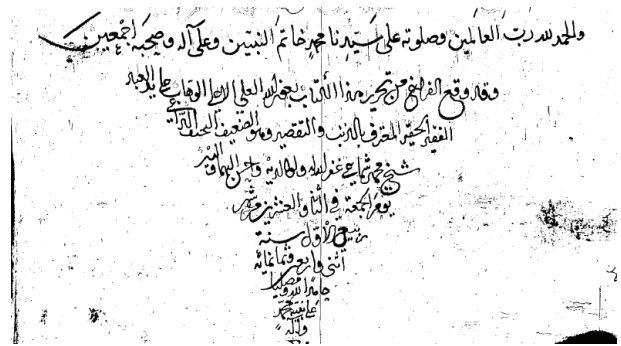 والحمد لله رب العالمين وصلوته على سيدنا محمد خاتم النبيين وعلى آله وصحبه اجمعين
وقد وقع الفراغ من تحرير هذا الكتاب بعون الله العلي الوهاب على يد العبد
الفقير الحقير المعترف بالذنب والتقصير وهو الضعيف النحيف
شيخ محمد غفر الله له ولوالديه واحسن اليهما واليه
يوم الجمعة في الثاني والعشرين من شهر
ربيع الأول سنة
اثنى واربعين وثمانمائه
حامدا لله ومصليا
على نبيه محمد
وآله